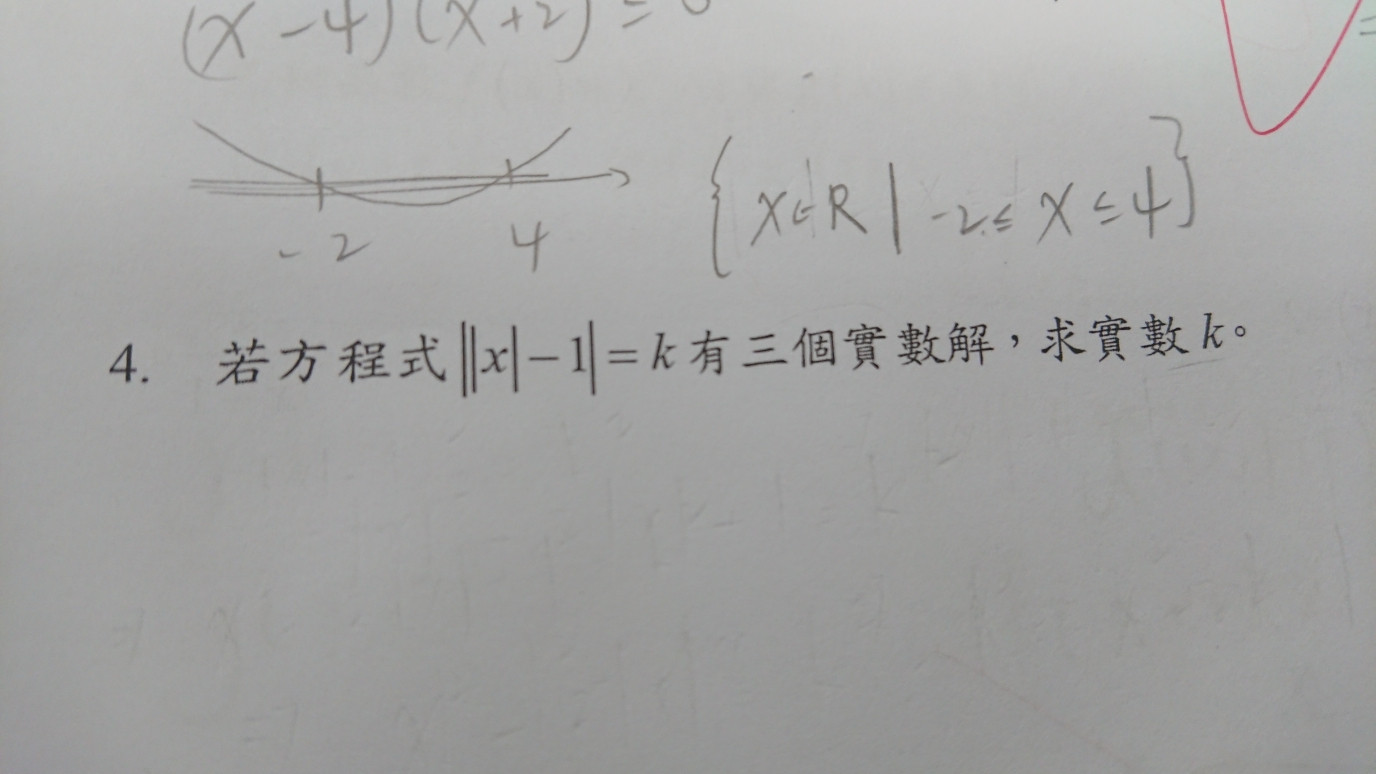 (x-4)(x+2)≤0
-2 4 {x∈R | -2≤x≤4}
4. 若方程式||x|-1|=k有三個實數解,求實數k。